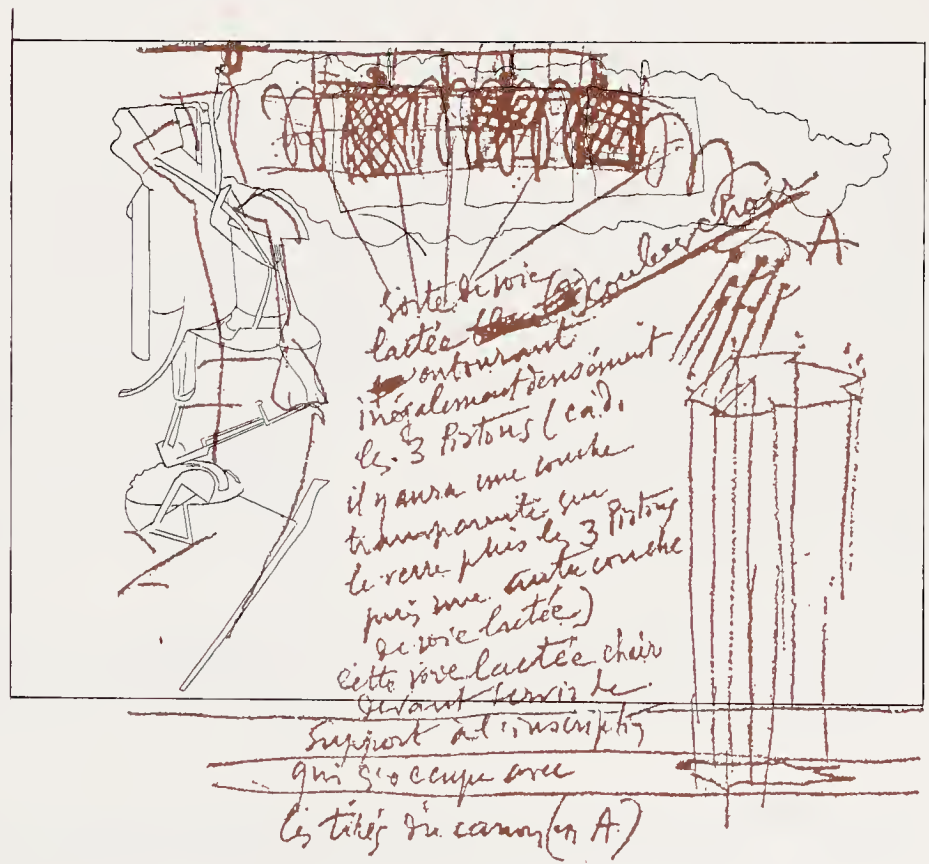 A
Sorte de voie
lactée couleur chair
entourant
inégalement densément
les 3 Pistons (c.à.d.
il y aura une couche
transparente sur
le verre puis les 3 Pistons
puis une autre couche
de voie lactée)
cette voie lactée chair
devant servir de
Support à l'inscription
qui s'occupe avec
les tirés du canon (en A)